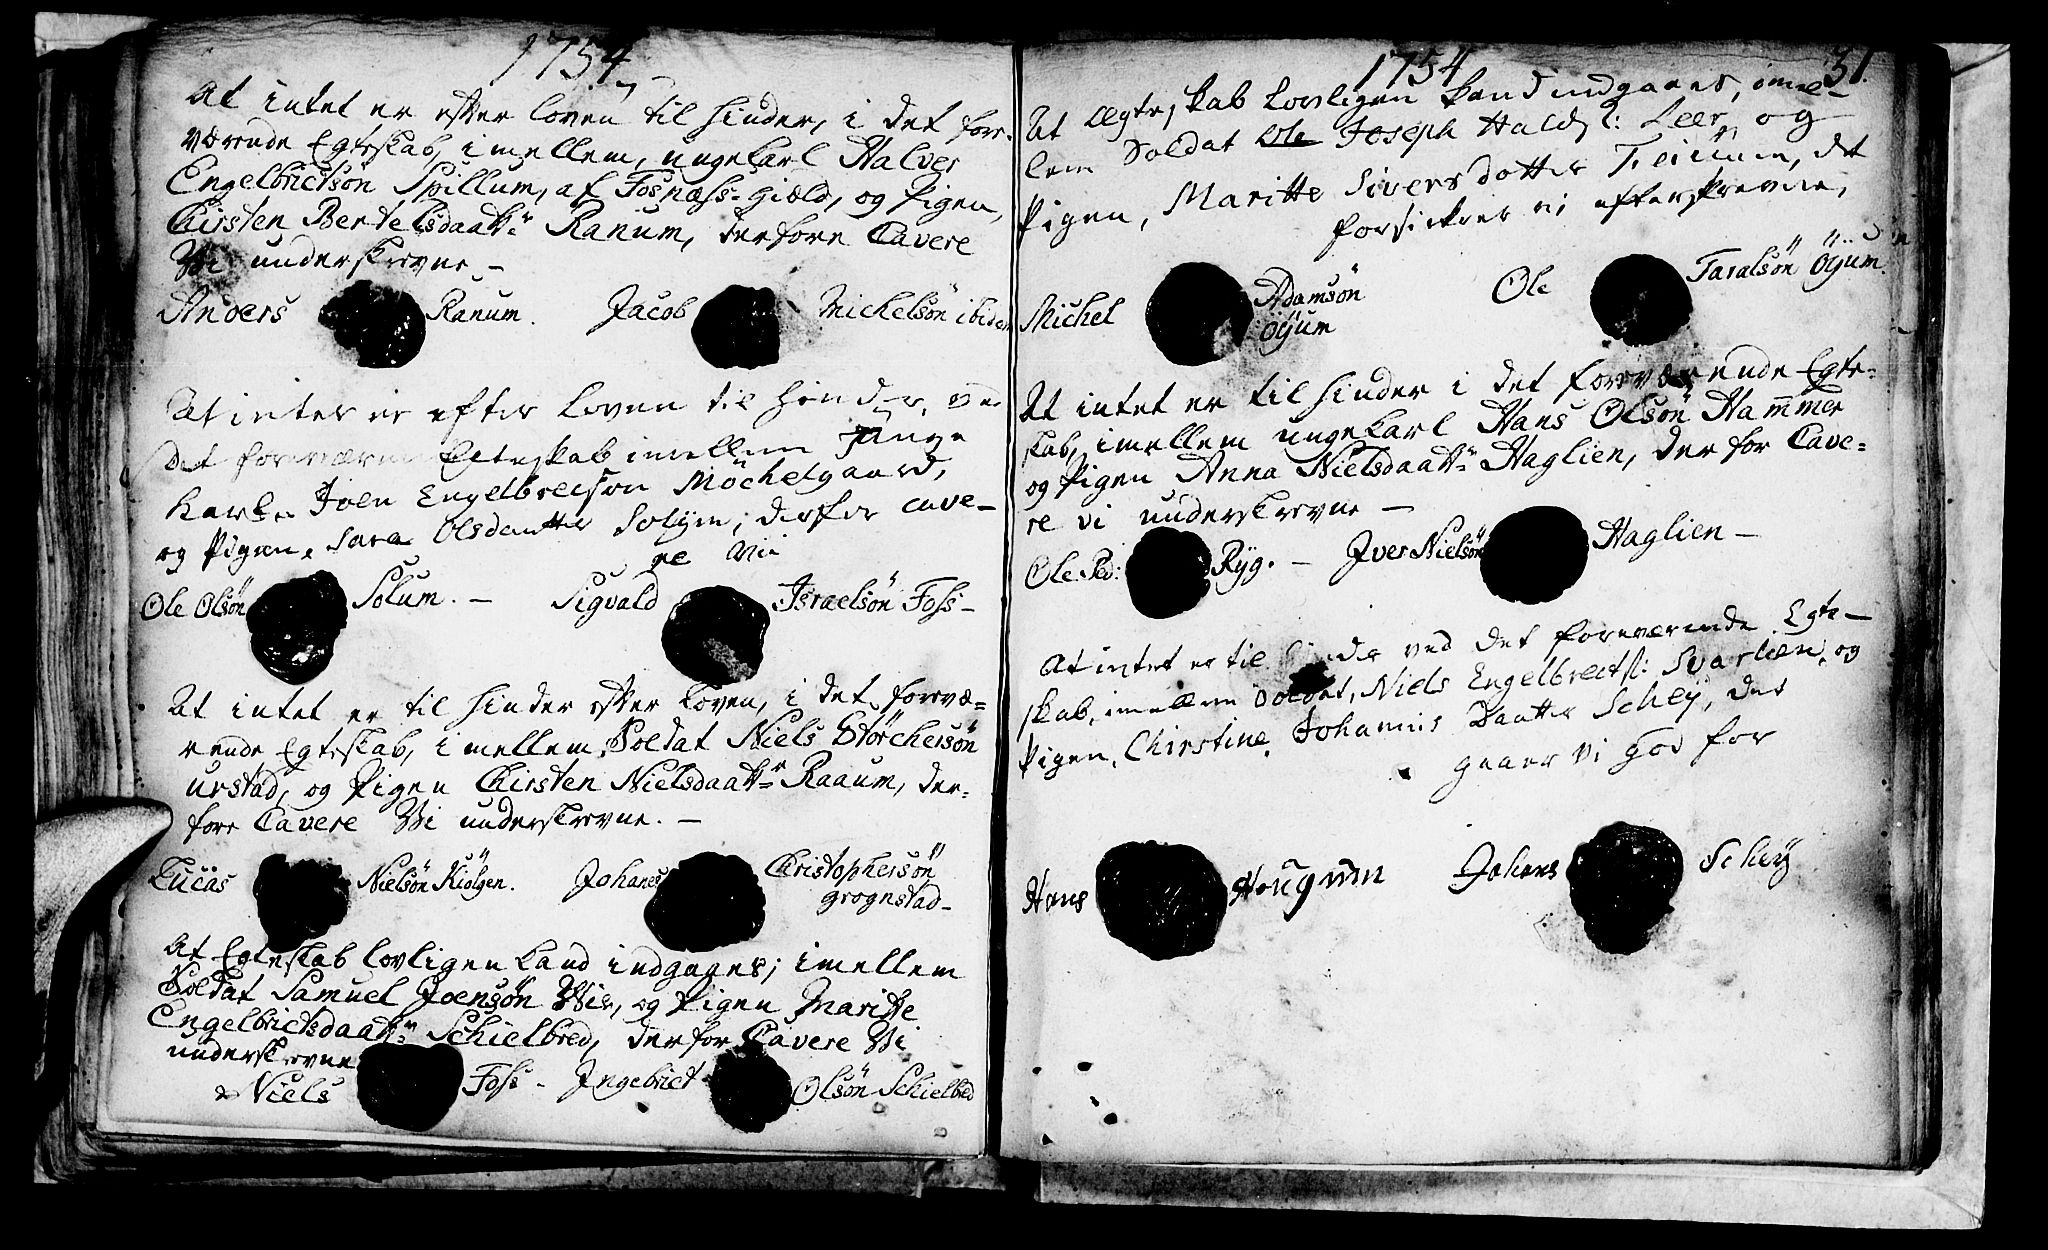 1754
At intet er efter loven til hinder, i det fore-
værende Egteskab, imellem, ungekarl Halver
Engelbrictsøn Spillum, af Fosnæss-Giæld, og Pigen,
Kirsten Bertelsdaatt: Ranum, derfore Cavere
Wi underskrevne -
Anders Ranum. Jacob Michelsön ibidem
At intet er efter loven til hinder, ved
det foreværende Egteskab imellem unge
karl. Joen Engelbrecson Möchelgaard,
og Pigen. Sara Olsdaatter Solum; derfor cave-
re vii
Ole Olsön Solum. - Sigvald Israelsön Foss -
At intet er til hinder efter loven, i det forevæ-
rende Egteskab, imellem Soldat Niels Störchersön
urstad, og Pigen Kirsten Nielsdaatt: Raaum, der-
fore Cavere Wi underskrevne. -
Lucas Nielsön Kiölgen. Johanes Christophersön
grognstad -
At Egteskab lovligen kand indgaaes; imellem
Soldat Samuel Joensön Wie, og Pigen Maritte
Engelbrictsdaatt: Schielbred, derfor Cavere Wi
underskrevne
Niels Foss - Ingebrict Olsön Schielbred
1754 31.
At Ægteskab lovligen kand indgaaes, imel-
lem Soldat Ole Joseph Halds: Leer, og
Pigen, Maritte Siversdotter, det
forsikrer vi efterskrevne,
Michel Adamsön Öÿum Ole Taralsön Öÿum.
At intet er til hinder i det foreværende Egte-
skab, imellem ungekarl Hans Olsön Hammer
og Pigen Anna Nielsdaatt: Haglien, derfor Cave-
re vi underskrevne -
Ole Ped: Ryg. - Iver Nielsön Haglien -
At intet er til hinder ved det foreværende Egte-
skab, imellem Soldat, Niels Engelbrects: Svarlien, og
Pigen, Chirstine Johannis Daatter Scheÿ, det
gaaer vi god for
Hans Hougum Johans Scheÿ